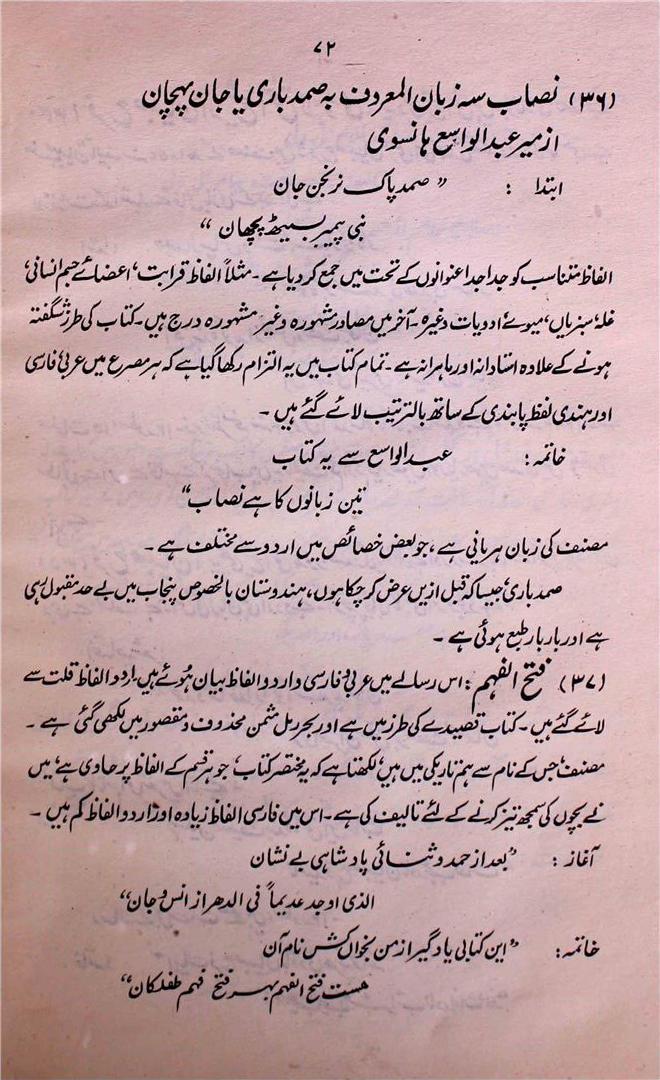 ۷۲
(۳۶) نصاب سہ زبان المعروف بہ صمد باری یا جان پہچان
از میر عبدالواسع ہانسوی
ابتدا : ”صمد پاک نرنجن جان
نبی پیمبر بسیٹھ پچھان“
الفاظ متناسب کو جدا جدا عنوانوں کے تحت میں جمع کر دیا ہے۔ مثلاً الفاظ قرابت، اعضائے جسم انسانی،
غلہ، سبزیاں، میوے، ادویات وغیرہ۔ آخر میں مصادر مشہورہ و غیر مشہورہ درج ہیں۔ کتاب کی طرز شگفتہ
ہونے کے علاوہ استادانہ اور ماہرانہ ہے۔ تمام کتاب میں یہ التزام رکھا گیا ہے کہ ہر مصرع میں عربی، فارسی
اور ہندی لفظ پابندی کے ساتھ بالترتیب لائے گئے ہیں۔
خاتمہ : عبدالواسع سے یہ کتاب
تین زبانوں کا ہے نصاب“
مصنف کی زبان ہریانی ہے، جو بعض خصائص میں اردو سے مختلف ہے۔
صمد باری، جیسا کہ قبل ازیں عرض کر چکا ہوں، ہندوستان بالخصوص پنجاب میں بے حد مقبول رہی
ہے اور بار بار طبع ہوئی ہے۔
(۳۷) فتح الفہم : اس رسالے میں عربی و فارسی و اردو الفاظ بیان ہوئے ہیں۔ اردو الفاظ قلت سے
لائے گئے ہیں۔ کتاب قصیدے کی طرز میں ہے اور بحر رمل مثمن محذوف و مقصور میں لکھی گئی ہے۔
مصنف، جس کے نام سے ہم تاریکی میں ہیں، لکھتا ہے کہ یہ مختصر کتاب، جو ہر قسم کے الفاظ پر حاوی ہے، میں
نے بچوں کی سمجھ تیز کرنے کے لئے تالیف کی ہے۔ اس میں فارسی الفاظ زیادہ اور اردو الفاظ کم ہیں۔
آغاز : ”بعد از حمد و ثنائی پادشاہی بے نشان
الذی اوجد عدیماً فی الدھر از انس و جان“
خاتمہ: ”این کتابی یادگیر از من بخوان کش نام آن
ہست فتح الفہم بہر فتح فہم طفلکان“